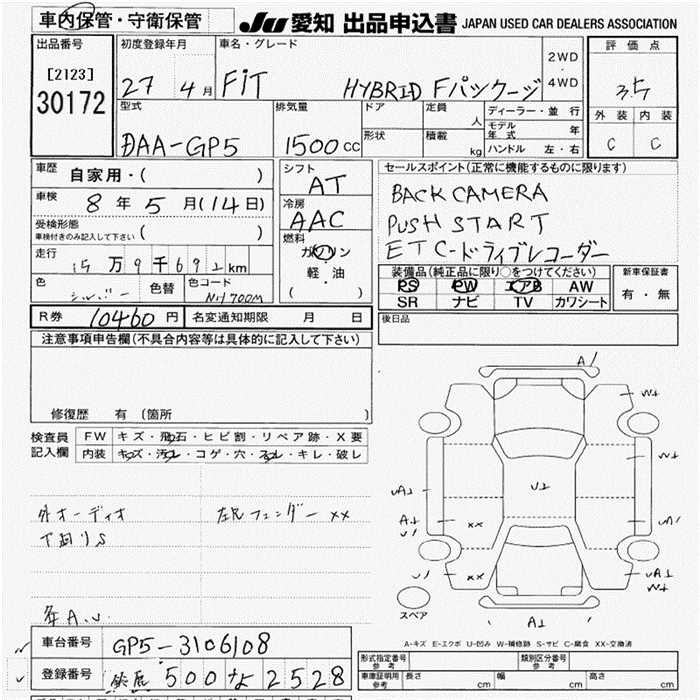 車内保管・守衛保管
JU 愛知 出品申込書 JAPAN USED CAR DEALERS ASSOCIATION
出品番号
[2123]
30172
初度登録年月
27 4月
車名・グレード
FiT HYBRID Fパッケージ
2WD
・
4WD
評価点
3.5
外装 内装
C C
型式
DAA-GP5
排気量
1500cc
ドア
形状
定員
人
積載
kg
ディーラー・並行
モデル年式 年
ハンドル 左・右
車歴
自家用・( )
車検
8年5月(14日)
受検形態
車検付きのみ記入して下さい ( )
走行
万9千692km
色
シルバー
色替
色コード
NH700M
シフト
AT
冷房
AAC
燃料
ガソリン
・
軽・油
( )
セールスポイント(正常に機能するものに限ります)
BACK CAMERA
PUSH START
ETC-ドライブレコーダー
装備品(純正品に限り○をつけてください)
PS PW エアB AW
SR ナビ TV カワシート
新車保証書
有・無
R券 10460円
名変通知期限 月 日
後日品
注意事項申告欄(不具合内容等は具体的に記入して下さい)
修復歴 有(箇所 )
検査員記入欄
FW キズ・飛石・ヒビ割・リペア跡・X要
内装 キズ・汚レ・コゲ・穴・スレ・キレ・破レ
外オーディオ
下廻りS
左Fフェンダー XX
A1
W1
W1
U1
A1
XX
U1
U1
XX
W1
A1
スペア
A-キズ E-エクボ U-凹み W-補修跡 S-サビ C-腐食 XX-交換済
車台番号
GP5-3106108
登録番号
鈴鹿 500 な 2528
形式指定番号
参考
類別区分番号
参考
車庫証明用
参考
長さ cm
幅 cm
高さ cm